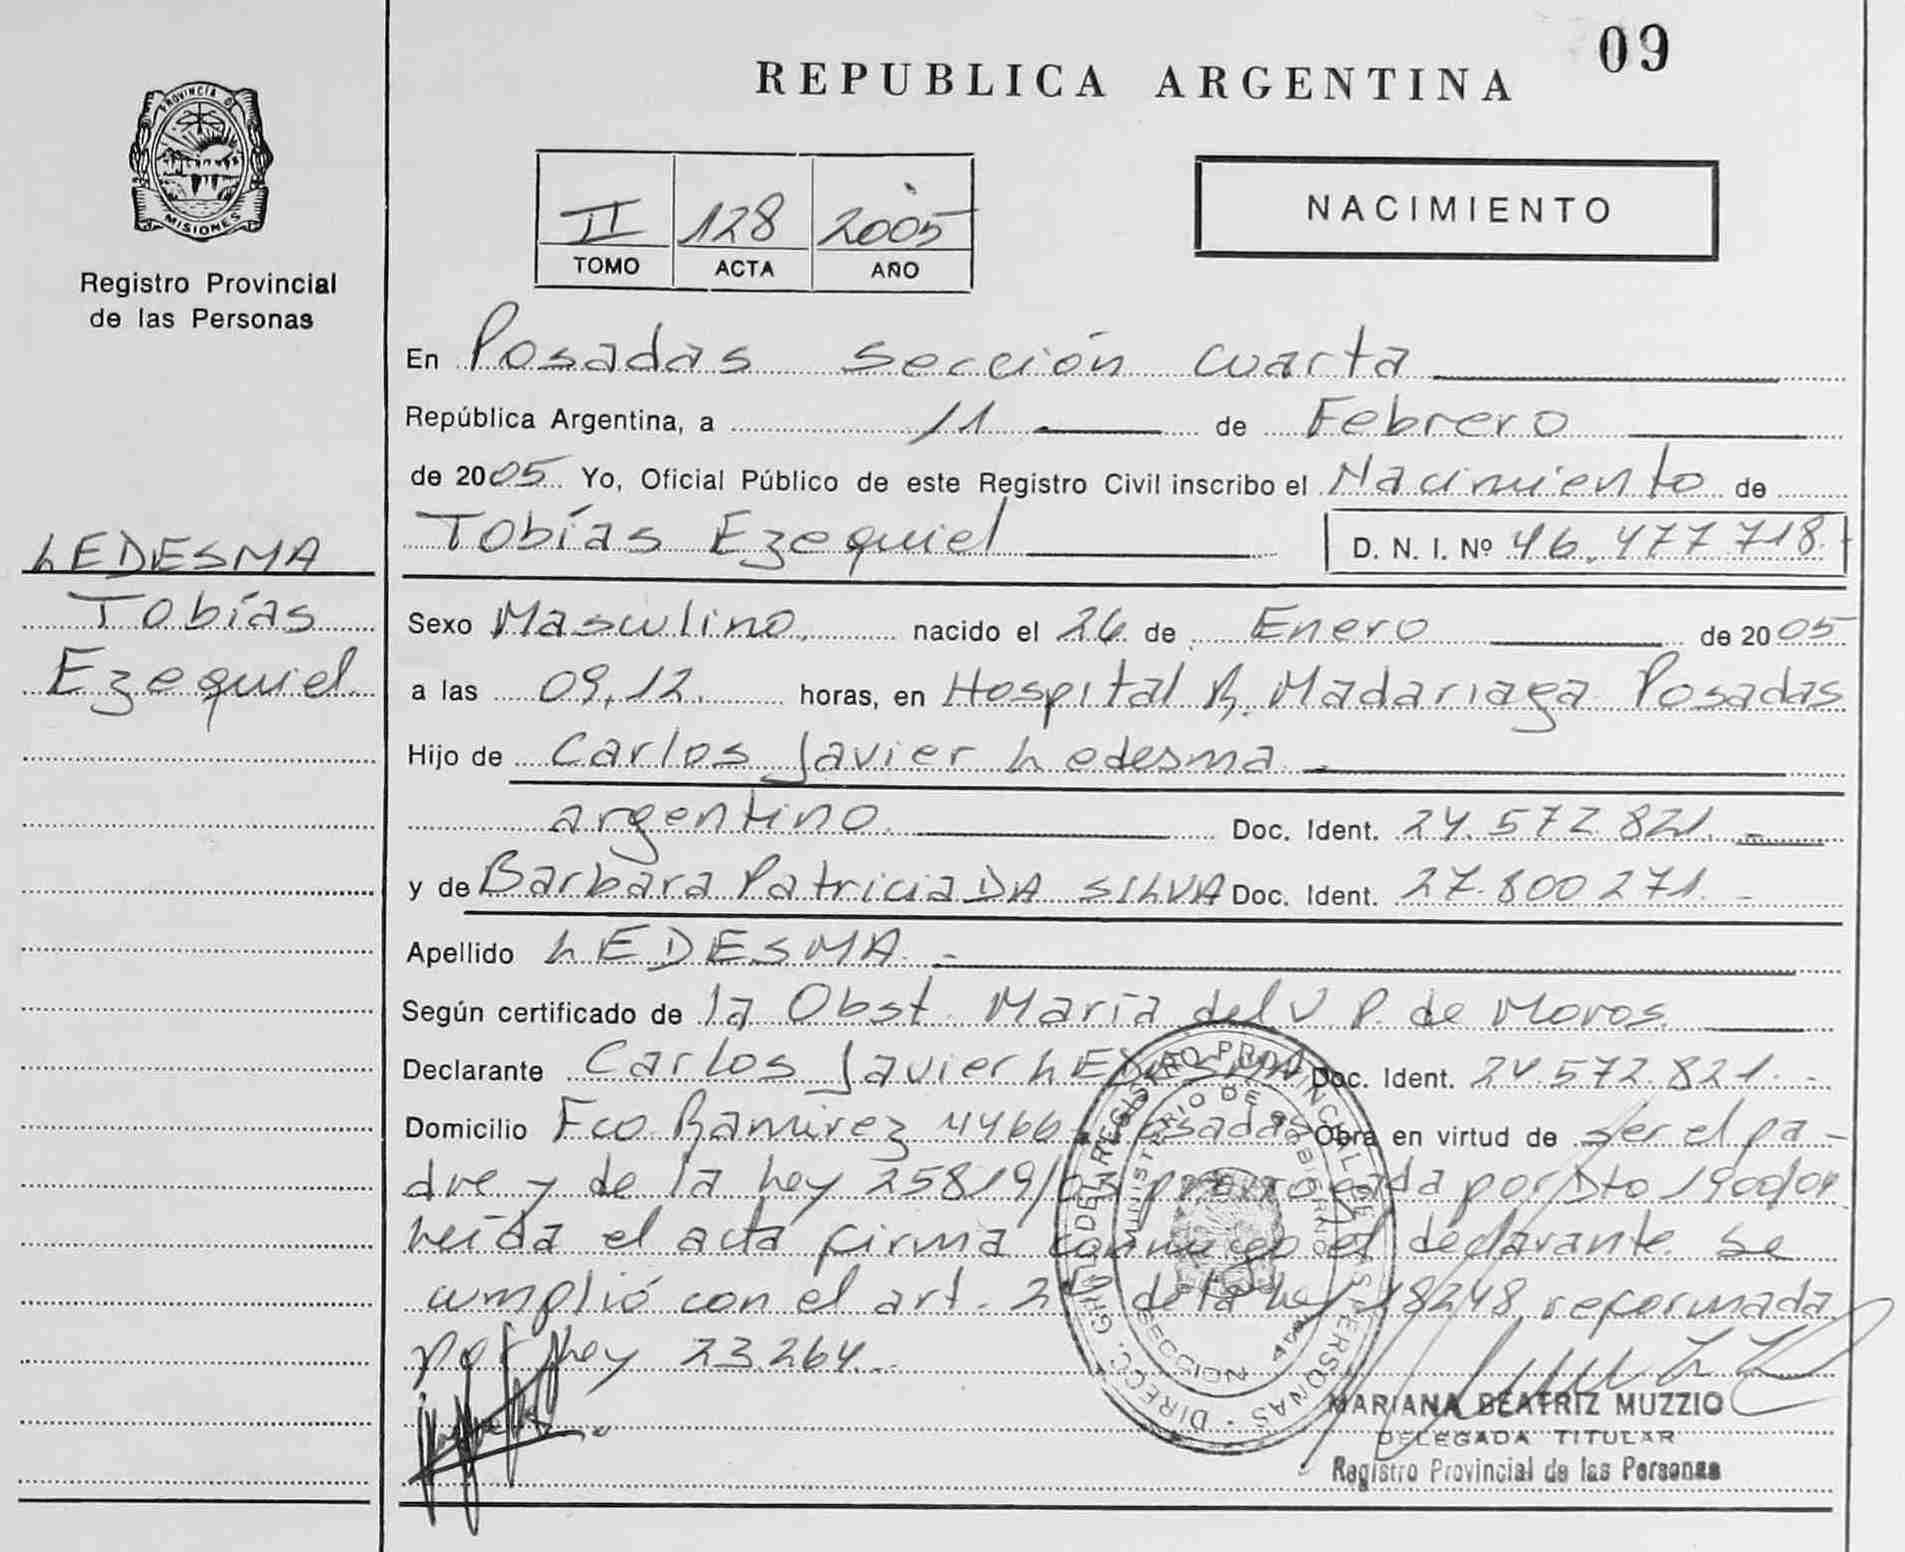 09
REPUBLICA ARGENTINA
PROVINCIA DE
MISIONES
Registro Provincial
de las Personas
II 128 2005
TOMO ACTA AÑO
NACIMIENTO
En Posadas sección cuarta
República Argentina, a 11 de Febrero
de 2005 Yo, Oficial Público de este Registro Civil inscribo el Nacimiento de
Tobías Ezequiel D. N. I. Nº 46.477 718
LEDESMA
Tobías
Ezequiel
Sexo Masculino nacido el 26 de Enero de 2005
a las 09,12 horas, en Hospital R. Madariaga Posadas
Hijo de Carlos Javier Ledesma
argentino Doc. Ident. 24.572 821.
y de Barbara Patricia DA SILVA Doc. Ident. 27.800 271.
Apellido LEDESMA
Según certificado de la Obst. María del V P. de Moros
Declarante Carlos Javier LEDESMA Doc. Ident. 24.572.821.
Domicilio Fco. Ramirez 4466 Posadas Obra en virtud de ser el pa-
dre y de la Ley 25819/03 prorrogada por Dto 1900/04
Leída el acta firma conmigo el declarante. Se
cumplió con el art. 2º de la Ley 18248 reformada
por Ley 23.264
DIRECC. GRAL DEL REGISTRO PROVINCIAL DE LAS PERSONAS
MINISTERIO DE GOBIERNO
SECCION 4ta
MARIANA BEATRIZ MUZZIO
DELEGADA TITULAR
Registro Provincial de las Personas